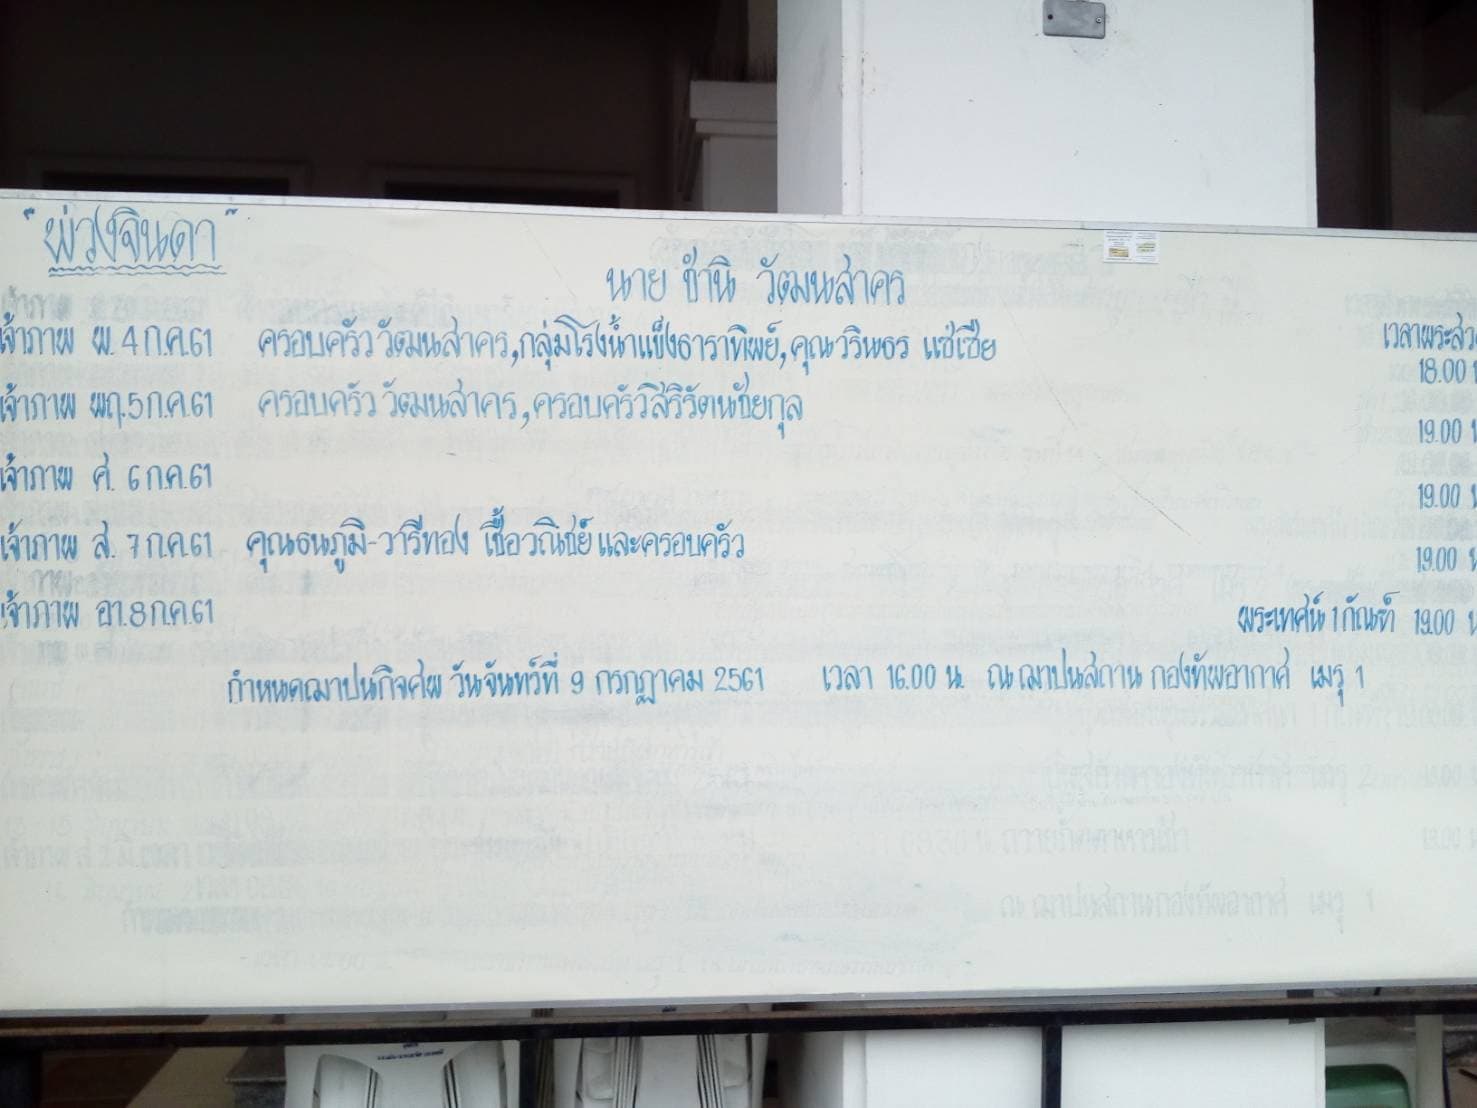 "พ่วงจินดา"
นาย ชำนิ วัฒนสาคร
เวลาพระสวด
เจ้าภาพ พ. 4 ก.ค.61 ครอบครัว วัฒนสาคร,กลุ่มโรงน้ำแข็งธาราทิพย์,คุณวรินธร แซ่เซีย 18.00 น
เจ้าภาพ พฤ.5 ก.ค.61 ครอบครัว วัฒนสาคร,ครอบครัวสิริรัตนชัยกุล 19.00 น
เจ้าภาพ ศ. 6 ก.ค.61 19.00 น
เจ้าภาพ ส. 7 ก.ค.61 คุณธนภูมิ-วารีทอง เชื้อวณิชย์ และครอบครัว 19.00 น
เจ้าภาพ อา.8 ก.ค.61 พระเทศน์ 1 กัณฑ์ 19.00 น
กำหนดฌาปนกิจศพ วันจันทร์ที่ 9 กรกฎาคม 2561 เวลา 16.00 น. ณ ฌาปนสถาน กองทัพอากาศ เมรุ 1